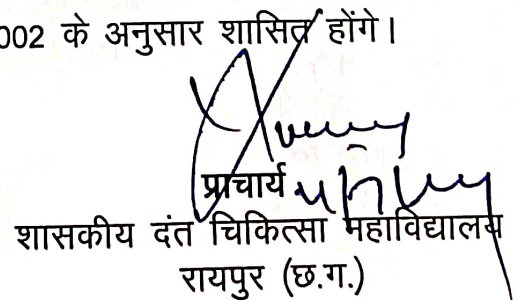 002 के अनुसार शासित होंगे।
प्राचार्य
शासकीय दंत चिकित्सा महाविद्यालय
रायपुर (छ.ग.)